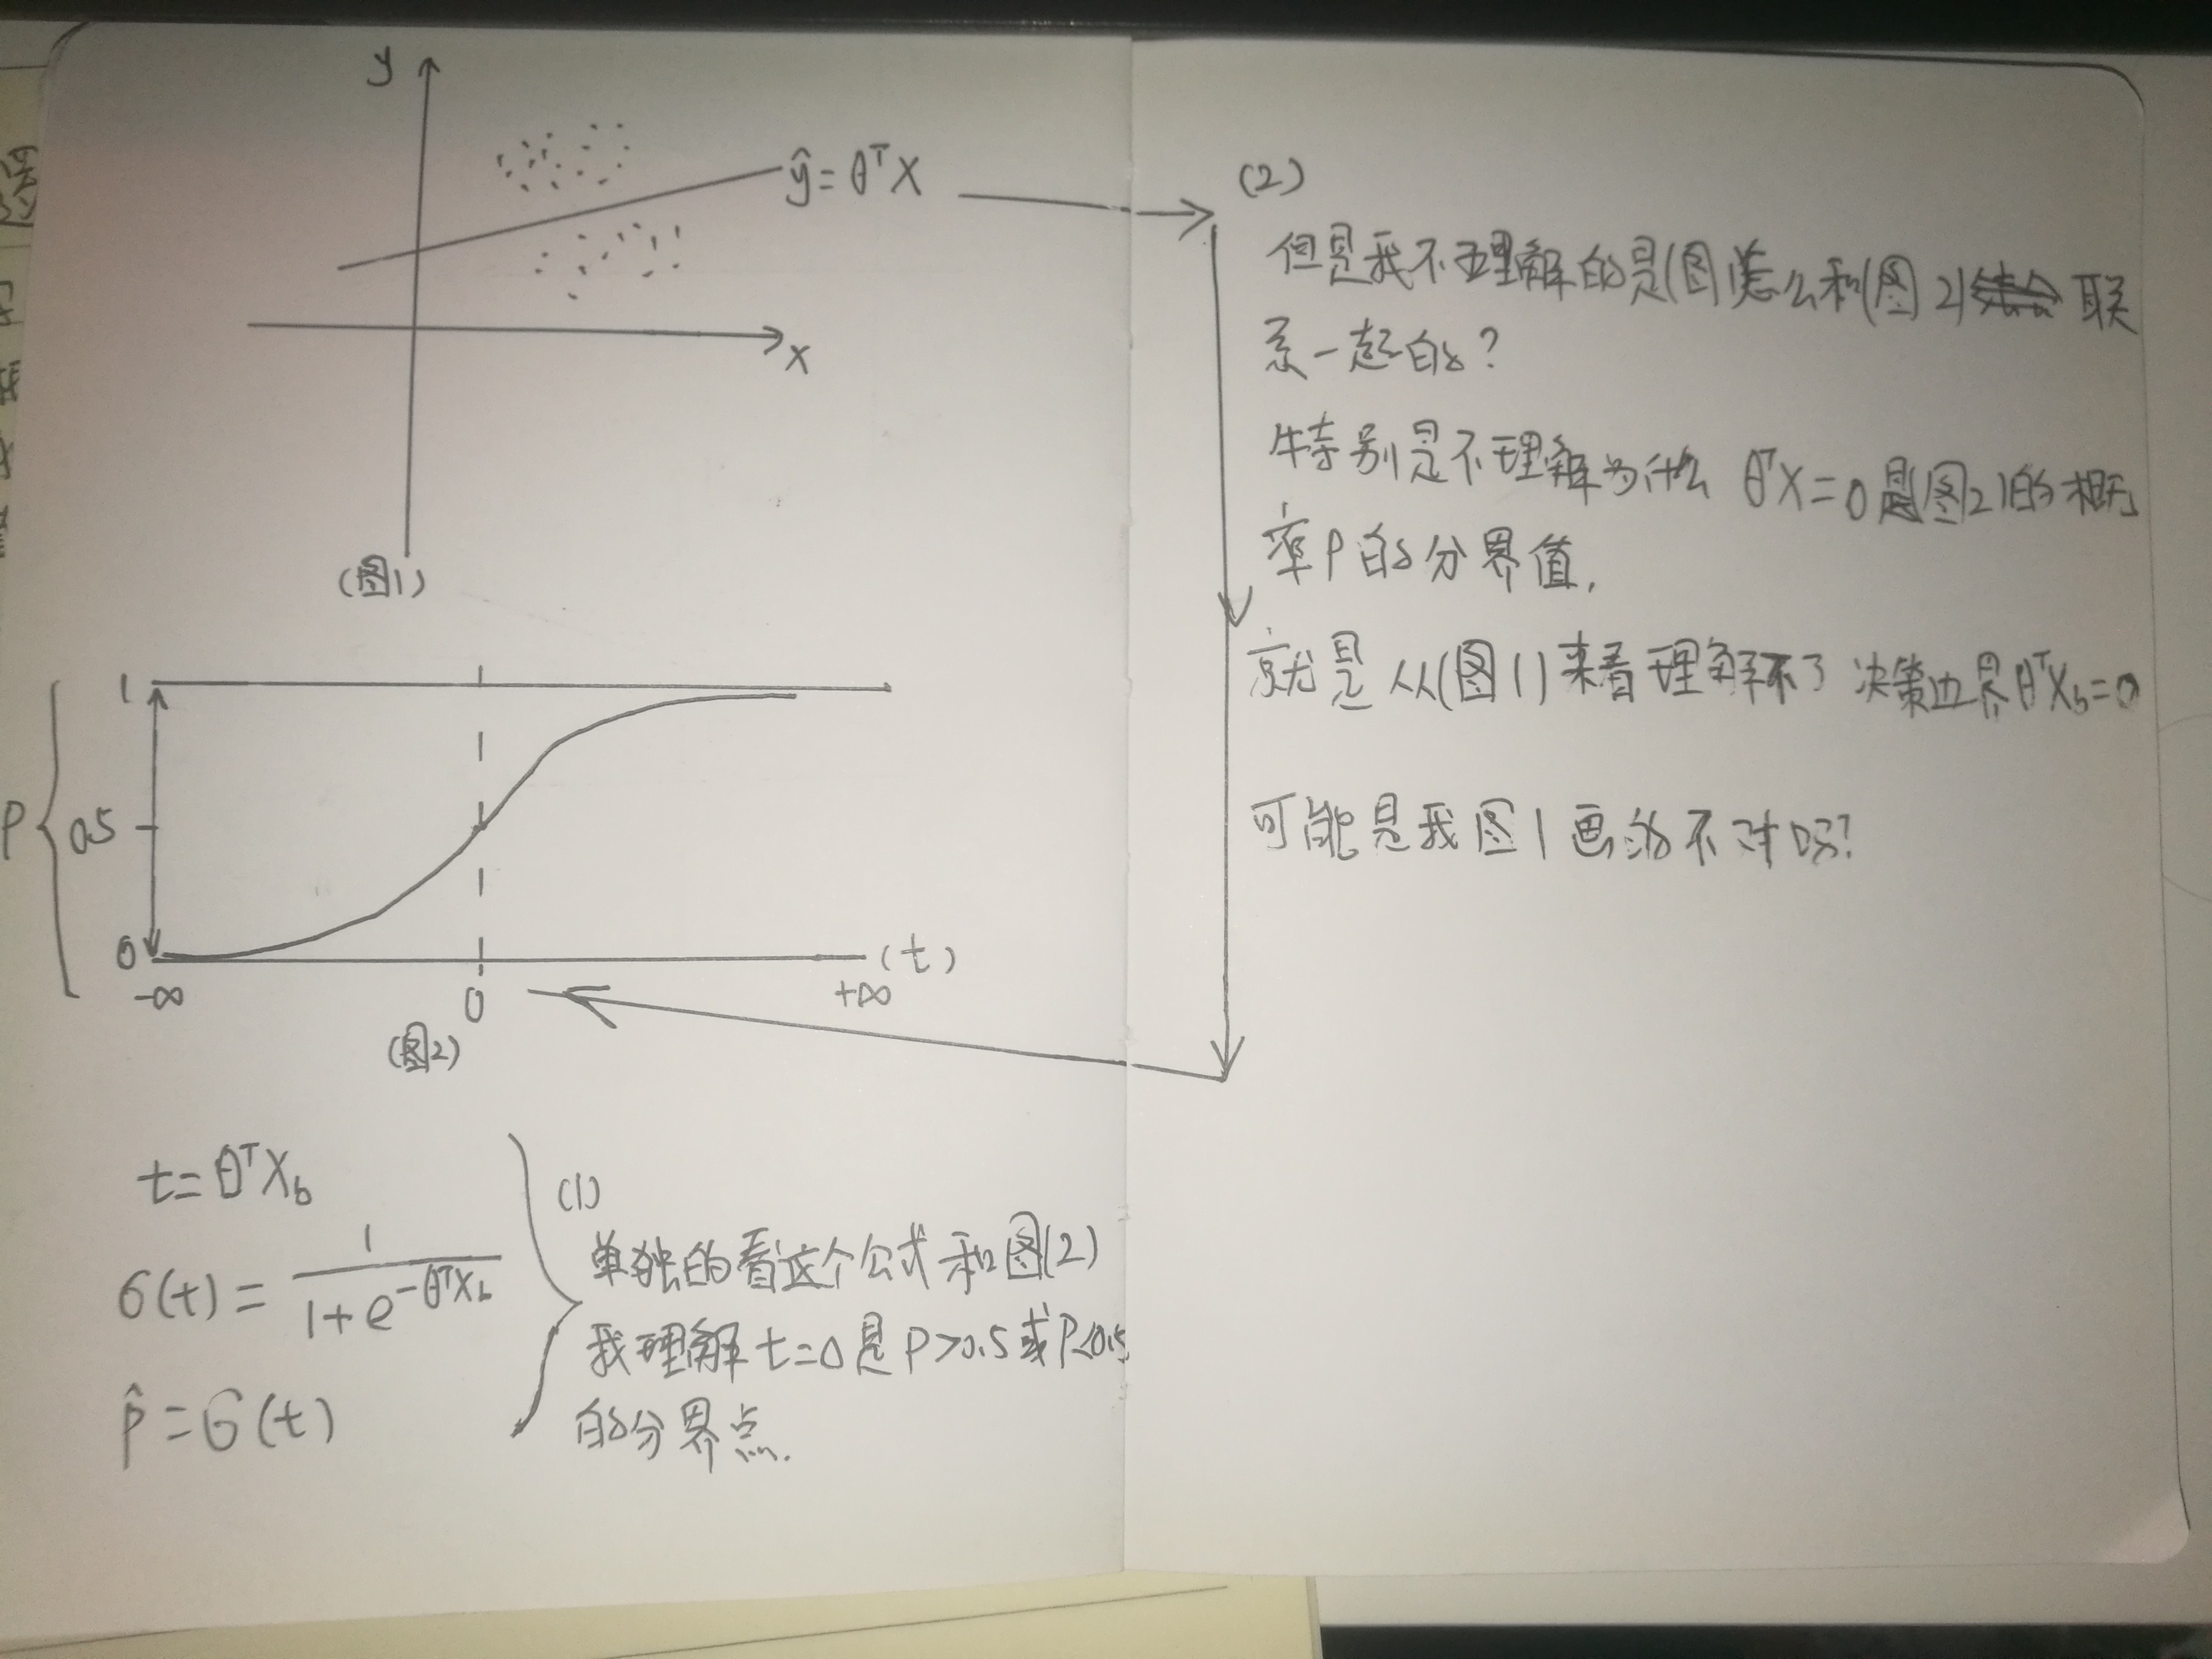 y
ŷ = θᵀX
x
(图1)
P
1
0.5
0
-∞
0
+∞
(t)
(图2)
t = θᵀX_b
σ(t) = 1 / (1 + e^(-θᵀX_b))
p̂ = σ(t)
(1)
单独的看这个公式和图(2)
我理解 t=0 是 P>0.5 或 P<0.5
的分界点.
(2)
但是我不理解的是(图1)怎么和(图2)联
系一起的?
特别是不理解为什么 θᵀX=0 是(图2)的概
率P的分界值.
就是从(图1)来看理解不了决策边界θᵀX_b=0
可能是我图1画的不对吗?